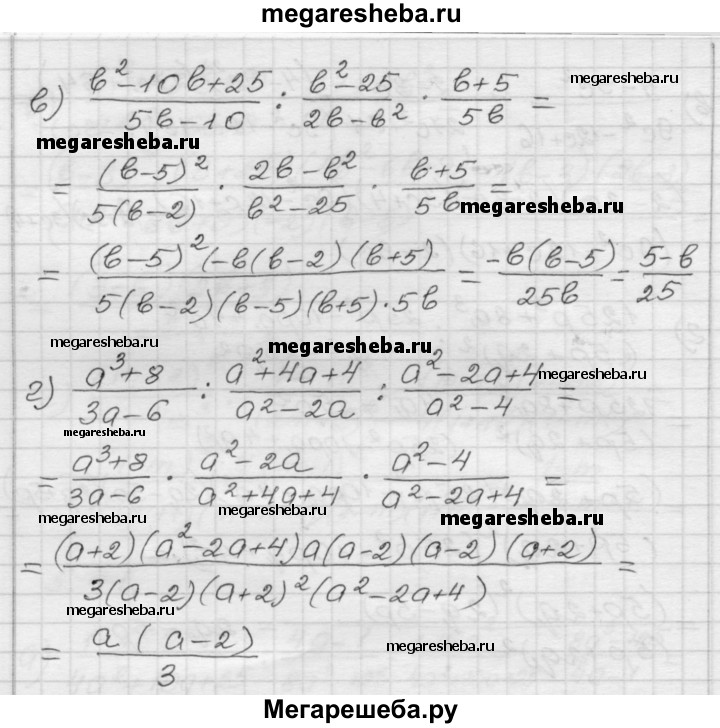 megaresheba.ru
в) (в²-10в+25)/(5в-10) : (в²-25)/(2в-в²) · (в+5)/(5в) = megaresheba.ru
megaresheba.ru
= (в-5)²/(5(в-2)) · (2в-в²)/(в²-25) · (в+5)/(5в) = megaresheba.ru
= ((в-5)²(-в(в-2)(в+5))/(5(в-2)(в-5)(в+5)·5в) = (-в(в-5))/(25в) = (5-в)/25
megaresheba.ru megaresheba.ru
г) (a³+8)/(3a-6) : (a²+4a+4)/(a²-2a) : (a²-2a+4)/(a²-4) = megaresheba.ru
megaresheba.ru
= (a³+8)/(3a-6) · (a²-2a)/(a²+4a+4) · (a²-4)/(a²-2a+4) =
megaresheba.ru megaresheba.ru megaresheba.ru
= ((a+2)(a²-2a+4)a(a-2)(a-2)(a+2))/(3(a-2)(a+2)²(a²-2a+4)) =
megaresheba.ru
= (a(a-2))/3 megaresheba.ru
Мегарешеба.ру